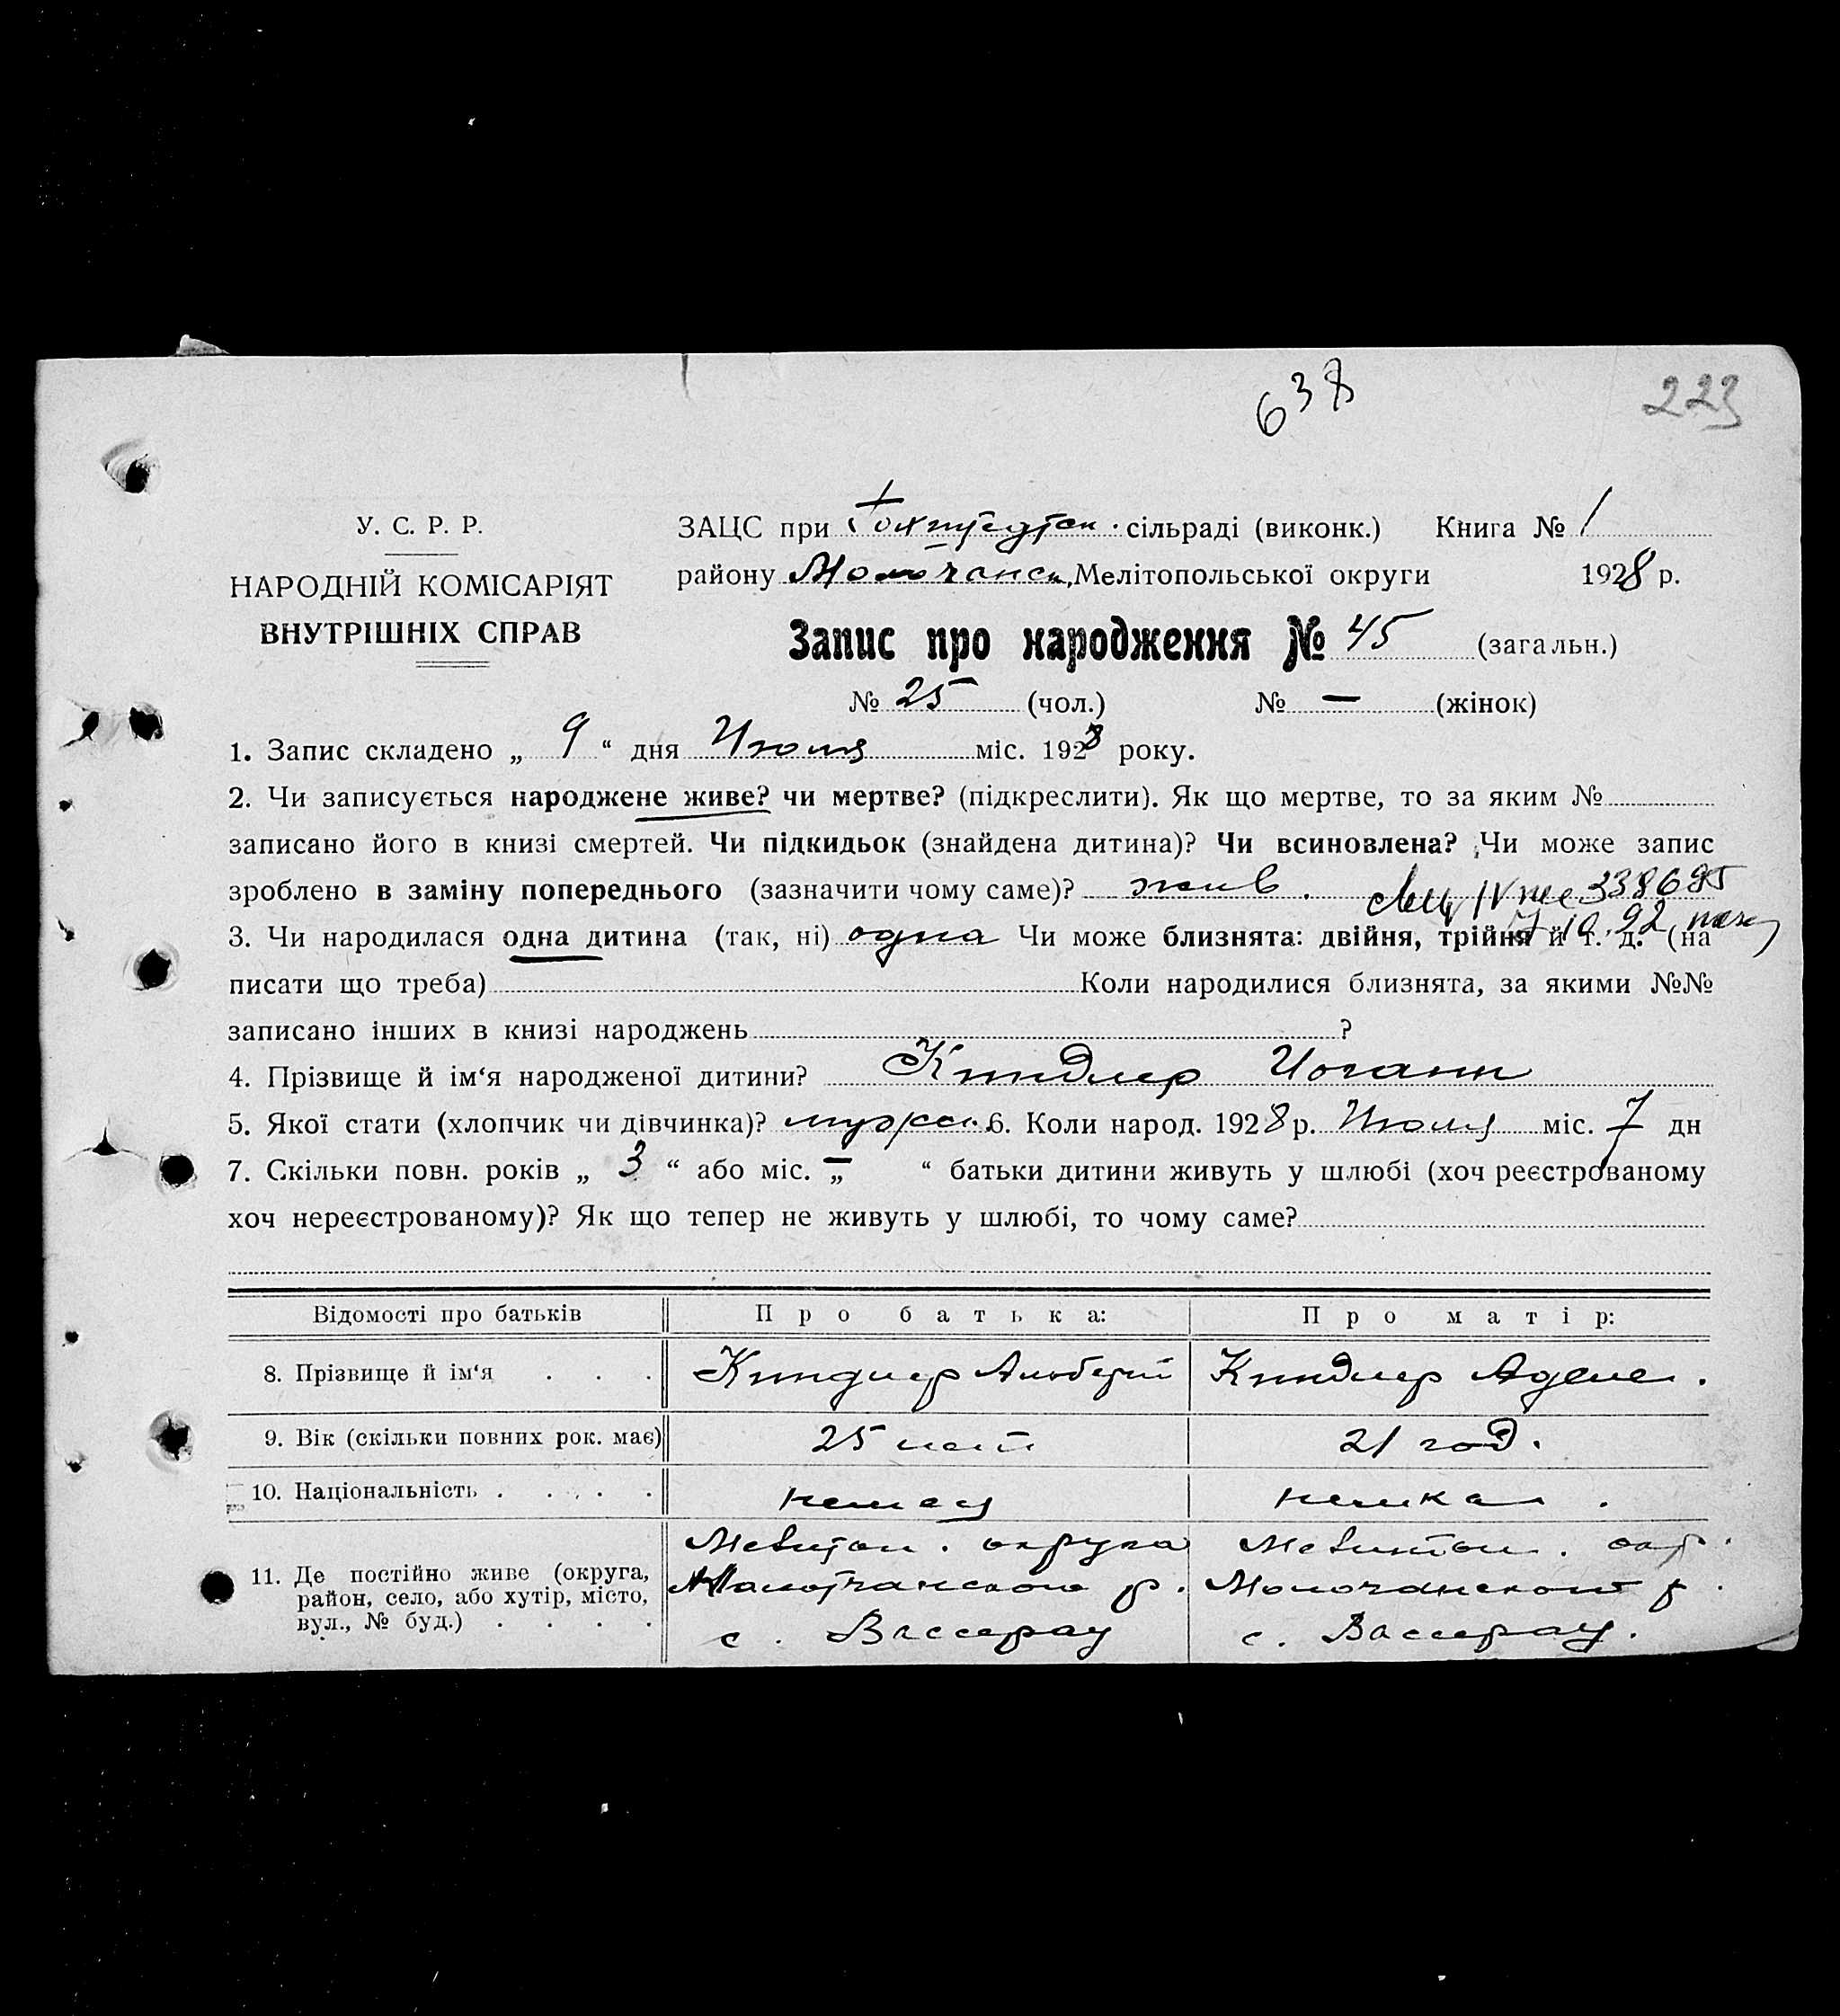 638
223
У. С. Р. Р.
НАРОДНІЙ КОМІСАРІЯТ
ВНУТРІШНІХ СПРАВ
ЗАЦС при сільраді (виконк.) Книга № 1
району Молочанск, Мелітопольської округи 1928 р.
Запис про народження № 45 (загальн.)
№ 25 (чол.) № — (жінок)
1. Запис складено „ 9 “ дня Июля міс. 1928 року.
2. Чи записується народжене живе? чи мертве? (підкреслити). Як що мертве, то за яким №
записано його в книзі смертей. Чи підкидьок (знайдена дитина)? Чи всиновлена? Чи може запис
зроблено в заміну попереднього (зазначити чому саме)? жив. 338695
3. Чи народилася одна дитина (так, ні) одна Чи може близнята: двійня, трійня й т. д. (на
писати що треба) Коли народилися близнята, за якими №№
записано інших в книзі народжень ?
4. Прізвище й ім‘я народженої дитини? Киндлер Иоганн
5. Якої стати (хлопчик чи дівчинка)? мужск. 6. Коли народ. 1928 р. Июля міс. 7 дн
7. Скільки повн. років „ 3 “ або міс. „ — “ батьки дитини живуть у шлюбі (хоч реєстрованому
хоч нереєстрованому)? Як що тепер не живуть у шлюбі, то чому саме?
Відомості про батьків Про батька: Про матір:
8. Прізвище й ім‘я . . . Киндлер Альберт Киндлер Аделе.
9. Вік (скільки повних рок. має) 25 лет 21 год.
10. Національність . . . . . немец немка .
11. Де постійно живе (округа,
район, село, або хутір, місто,
вул., № буд.) . . . .
Мелитоп. округа Мелитоп. окр.
Молочанского р. Молочанского р.
с. Вассерау с. Вассерау.